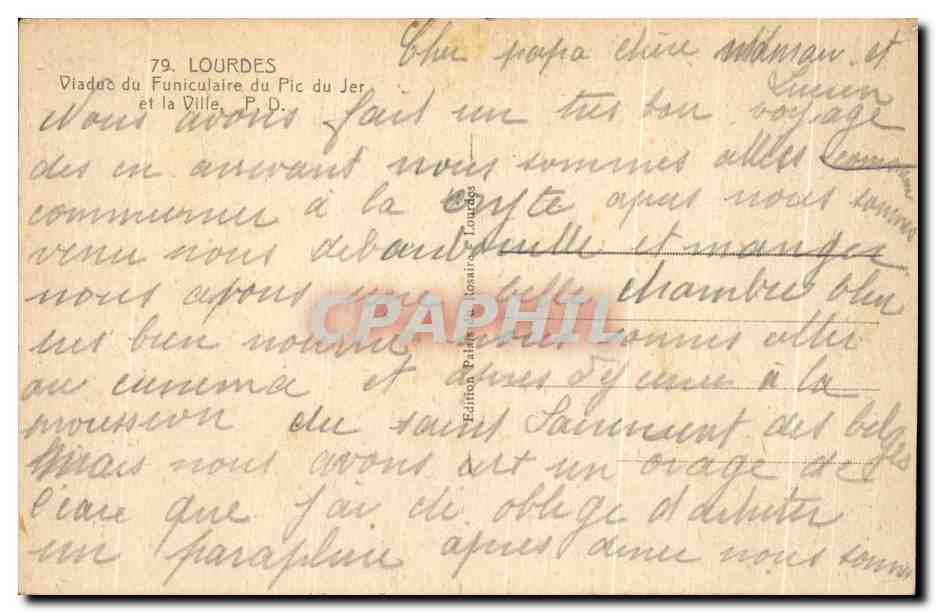 79. LOURDES
Viaduc du Funiculaire du Pic du Jer
et la Ville. P. D.
Cher papa chère maman et
Lucien
Nous avons fait un tres bon voyage
des en arrivant nous sommes alles
communier à la crypte apres nous sommes
venu nous debarbouille et manger
nous avons une belle chambre bleu
tres bien nourrie nous sommes aller
au cinema et apres à la
du saint des belges
Mais nous avons un orage de
que j'ai oblige d'acheter
un parapluie apres diner nous sommes
Edition Palais du Rosaire - Lourdes
CPAPHIL